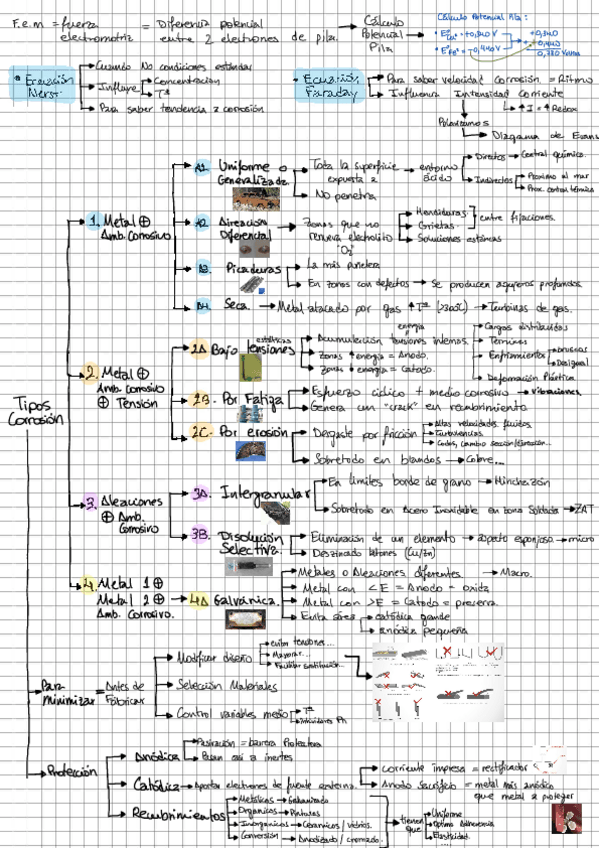 F.e.m = fuerza electromotriz = Diferencia potencial entre 2 electrones de pila. → Cálculo Potencial Pila
Cálculo Potencial Pila:
Ecuación Nerst.
Cuando No condiciones estándar
Influye → Concentración
Tª
Para saber tendencia a corrosión
Ecuación Faraday
Para saber velocidad corrosión = Ritmo
Influencia Intensidad corriente
↑ I = ↑ Redox
Polarizamos
Diagrama de Evans
Tipos Corrosión
1. Metal ⊕ Amb. Corrosivo
Uniforme o Generalizada.
Toda la superficie expuesta a → entorno ácido
Directos → Central química.
Indirectos → Próximo al mar
Prox. central térmica
No penetra
Aireación Diferencial
Zonas que no renueva electrolito "O₂"
Hendiduras.
Grietas.
entre fijaciones.
Soluciones estáncas
A3. Picaduras
La más penetra
En zonas con defectos → Se producen agujeros profundos.
A4. Seca. → Metal atacado por gas ↑ Tª → Turbinas de gas.
2. Metal ⊕ Amb. Corrosivo ⊕ Tensión
2A Bajo tensiones estáticas
Acumulación tensiones internas.
energía
Zonas ↑ energía = Ánodo.
Zonas energía = Cátodo.
Cargas distribuidas
Térmicas
Enfriamientos → bruscos
Desigual
Deformación Plástica
2B. Por Fatiga
Esfuerzo cíclico + medio corrosivo → Vibraciones.
Genera un "crack" en recubrimiento.
2C. Por erosión
Desgaste por fricción
Altas velocidades fluidos.
Turbulencias
Codos, cambio sección/dirección...
Sobretodo en blandos → Cobre...
3. Aleaciones ⊕ Amb. Corrosivo
3A. Intergranular
En límites borde de grano → Hinchazón
Sobretodo en Acero Inoxidable en zona Soldada → ZAT
3B. Disolución Selectiva.
Eliminación de un elemento → aspecto esponjoso. → micro
Deszincado latones (Cu/Zn)
4. Metal 1 ⊕ Metal 2 ⊕ Amb. Corrosivo.
4A Galvánica.
Metales o Aleaciones diferentes → Macro.
Metal con < E = Ánodo - oxida
Metal con > E = Cátodo = preserva.
catódica grande
anódica pequeña
Para minimizar = Antes de Fabricar
Modificar diseño
evitar tensiones...
Mejorar...
Facilitar sustitución...
Selección Materiales
Control variables medio → Tª
Inhibidores Ph
Protección
Anódica
Pasivación = barrera Protectora
Pasan a inertes
Catódica → Aportar electrones de fuente externa.
corriente impresa = rectificador
Ánodo Sacrificio = metal más anódico que metal a proteger
Recubrimientos
Metálicos → Galvanizado
Orgánicos → Pinturas
Inorgánicos → Cerámicos / vidrios.
Conversión → Anodizado / cromado.
tienen que
Uniforme
Óptima Adherencia
Elasticidad